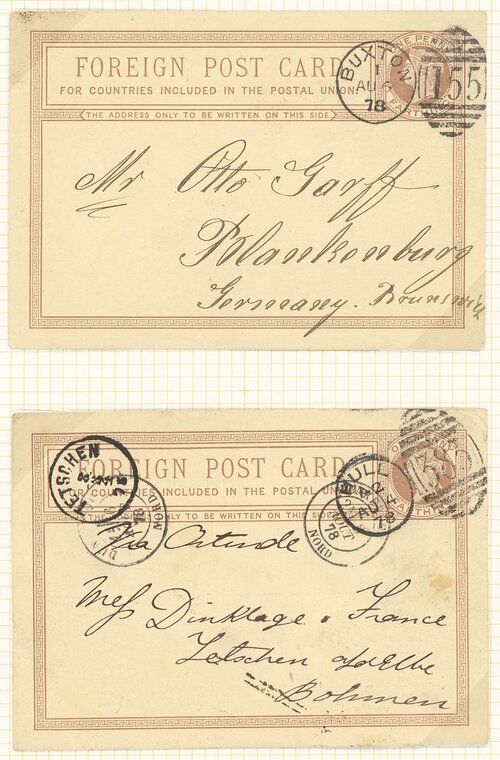 FOREIGN POST CARD
FOR COUNTRIES INCLUDED IN THE POSTAL UNION
(THE ADDRESS ONLY TO BE WRITTEN ON THIS SIDE.)
ONE PENNY
FARTHING
BUXTON
1
AU 6
78
155
Mr Otto Garff
Blankenburg
Germany. Brunswick
FOREIGN POST CARD
FOR COUNTRIES INCLUDED IN THE POSTAL UNION
(THE ADDRESS ONLY TO BE WRITTEN ON THIS SIDE.)
TETSCHEN
HULL
AU
78
AOUT
78
NORD
Via Ostende
Mess Dinklage & France
Tetschen a/d Elbe
Bohmen